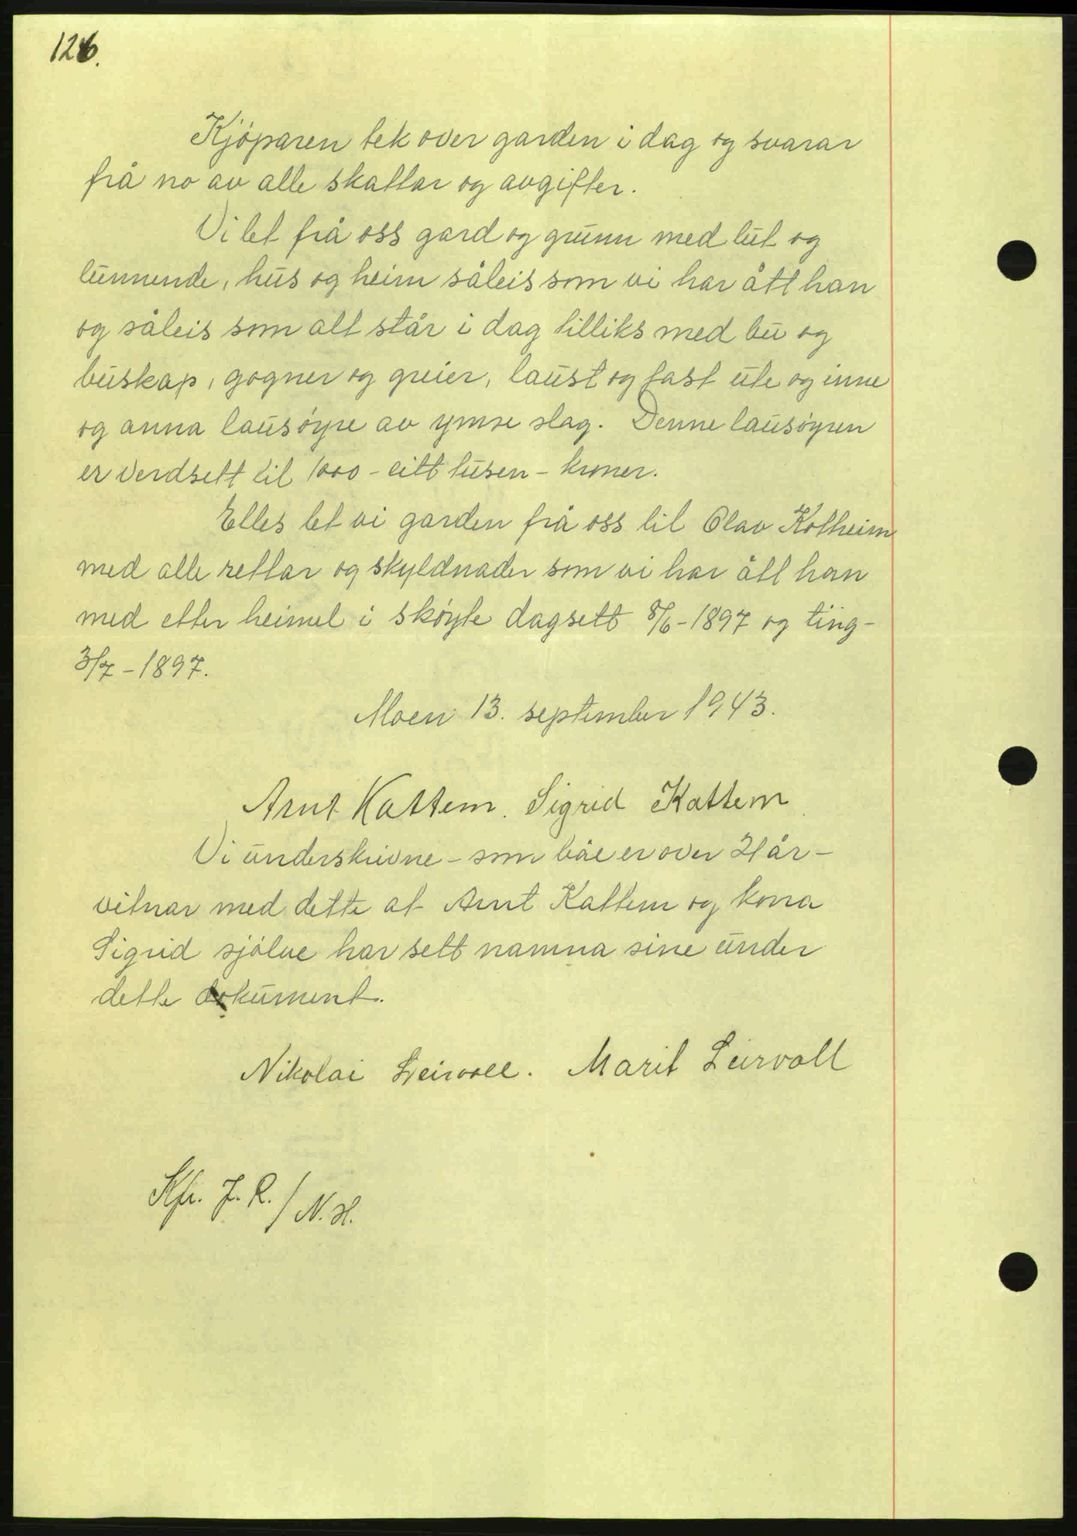 126.
Kjöparen tek over garden i dag og svarar
frå no av alle skattar og avgifter.
Vi let frå oss gard og grunn med lut og
lunnende, hus og heim såleis som vi har ått han
og såleis som alt står i dag tilliks med bu og
buskap, gogner og greier, laust og fast ute og inne
og anna lausøyre av ymse slag. Denne lausøyren
er verdsett til 1000 - eitt tusen - kroner.
Elles let vi garden frå oss til Olav Kottheim
med alle rettar og skyldnader som vi har ått han
med etter heimel i skøyte dagsett 8/6-1897 og ting-
3/7-1897.
Moen 13. september 1943.
Arnt Kattem. Sigrid Kattem
Vi underskrivne - som båe er over 21 år -
vitnar med dette at Arnt Kattem og kona
Sigrid sjölve har sett namna sine under
dette dokument.
Nikolai Leirvoll. Marit Leirvoll
Kfr. J. R. / N. H.